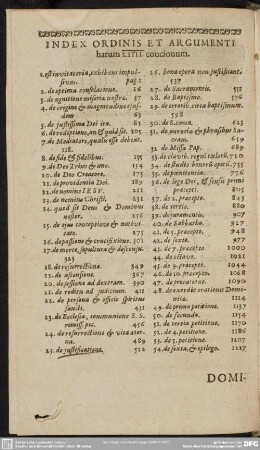 INDEX ORDINIS ET ARGUMENTI
harum LIIII concionum.
1. est invitatoria, exhibens impulsivum. pag. 1
2. de optima consolatione. 16
3. de agnitione miseriæ nostræ. 37
4. de origine & magnitudine ejusdem 63
5. de justissima Dei ira. 85
6. de redemptione, an & quid sit. 105
7. de Mediatore, qualis esse debeat. 138.
8. de fide & fidelibus. 155
9. de Deo trino & uno. 154
10. de Deo Creatore. 175
11. de providentia Dei. 189
12. de nomine IESU. 211
13. de nomine Christi. 232
14. quod sit Deus & Dominus noster. 256
15. de ejus conceptione & nativitate. 275
16. de passione & crucifixione. 301
17. de morte, sepultura & descensu. 323
18. de resurrectione. 349
19. de ascensione. 367
20. de sessione ad dextram. 390
21. de reditu ad judicium. 411
22. de persona & officio spiritus sancti. 431
23. de Ecclesia, communione S. S. remiss. pec. 456
24. de resurrectione & vita æterna. 489
25. de justificatione. 512
26. bona opera non justificant. 537
27. de Sacramentis. 555
28. de Baptismo. 576
29. de errorib. circa baptismum. 598
30. de S. cœna. 625
31. de
32. de Missa Pap. 689
33. de clavib. regni cœlor. 710
34. de studio bonorum operū. 755
35. de pœnitentia. 776
36. de lege Dei, & sensu primi præcepti. 805
37. de 2. præcepto. 843
38. de tertio. 880
39. de juramento. 907
40. de Sabbatho. 927
41. de 5. præcepto. 948
42. de sexto. 977
43. de 7. præcepto. 1000
44. de octavo. 1021
45. de 9. præcepto. 1044
46. de 10. præcepto. 1068
47. de precatione. 1090
48. de exordio orationis Dominicæ. 1114
49. de prima petitione. 1137
50. de secunda. 1154
51. de tertia petitione. 1170
52. de 4. petitione. 1186
53. de 5. petitione. 1201
54. de sexta, & epilogo. 1217
DOMI-